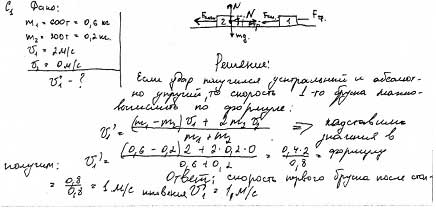 C₁ Дано:
m₁ = 600г = 0,6 кг
m₂ = 200г = 0,2 кг.
υ₁ = 2 м/с
υ₂ = 0 м/с
υ₁' - ?
N N
2 1
Fтр.
mg
Решение:
Если удар получился центральный и абсолют-
но упругий, то скорость 1-го бруска можно
вычислить по формуле:
υ₁' = (m₁ - m₂) υ₁ + 2 m₂ υ₂ / m₁ + m₂ ⇒ подставим
значения в
формулу
получим: υ₁' = (0,6 - 0,2) 2 + 2 · 0,2 · 0 / 0,6 + 0,2 = 0,4 · 2 / 0,8 =
= 0,8 / 0,8 = 1 м/с Ответ: скорость первого бруска после стол-
кновения υ₁' = 1 м/с